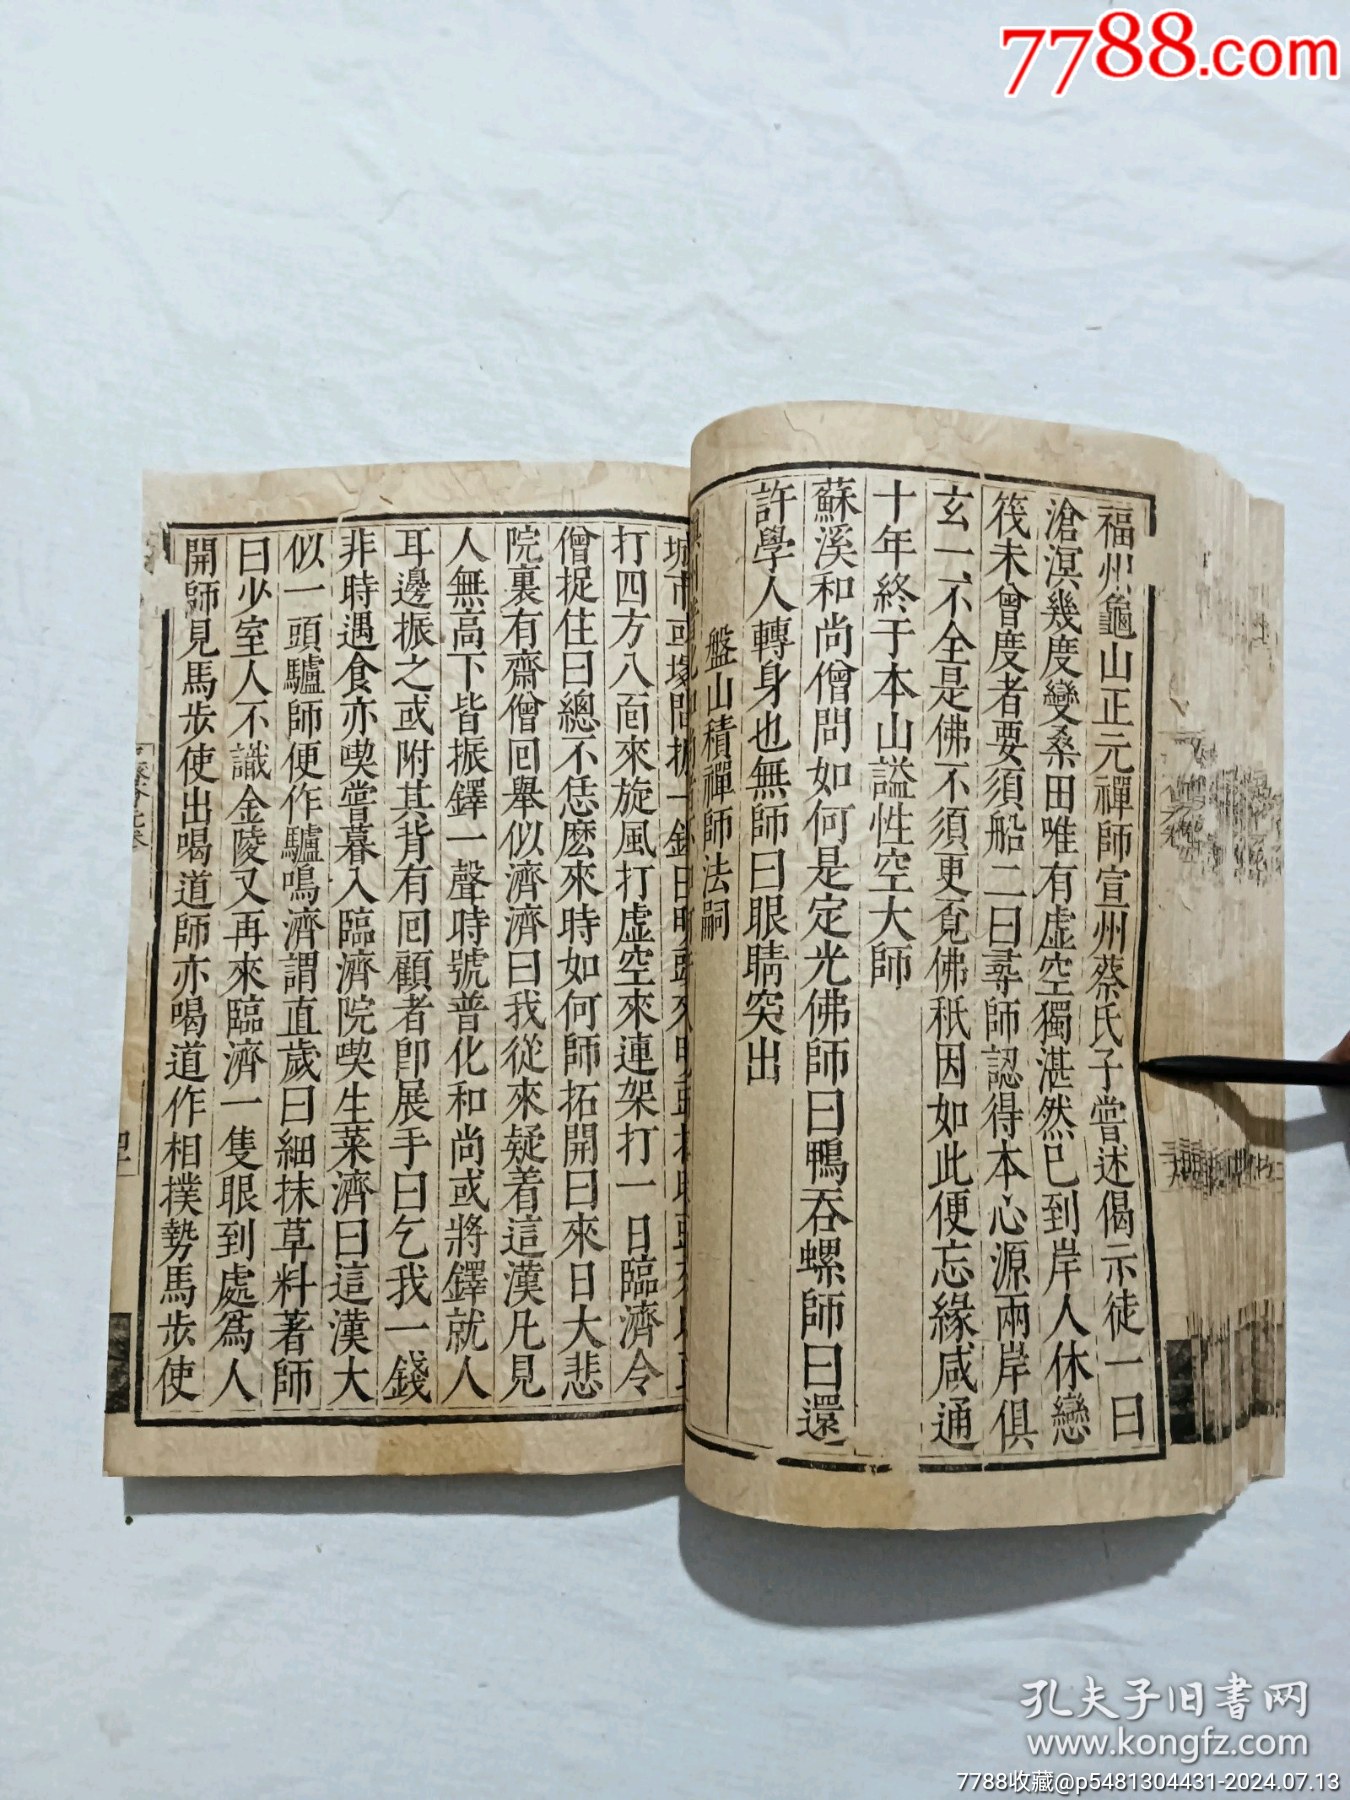 7788.com
福州龜山正元禪師宣州蔡氏子嘗述偈示徒一曰
滄溟幾度變桑田唯有虛空獨湛然已到岸人休戀
筏未曾度者要須船二曰尋師認得本心源兩岸俱
玄一不全是佛不須更覓佛秖因如此便忘緣咸通
十年終于本山謚性空大師
蘇溪和尚僧問如何是定光佛師曰鴨吞螺師曰還
許學人轉身也無師曰眼睛突出
盤山積禪師法嗣
打四方八面來旋風打虛空來連架打一日臨濟令
僧捉住曰總不恁麽來時如何師拓開曰來日大悲
院裏有齋僧回舉似濟濟曰我從來疑着這漢凡見
人無高下皆振鐸一聲時號普化和尚或將鐸就人
耳邊振之或附其背有回顧者卽展手曰乞我一錢
非時遇食亦喫嘗暮入臨濟院喫生菜濟曰這漢大
似一頭驢師便作驢鳴濟謂直歲曰細抹草料著師
曰少室人不識金陵又再來臨濟一隻眼到處爲人
開師見馬步使出喝道師亦喝道作相撲勢馬步使
孔夫子旧書网
www.kongfz.com
7788收藏@p5481304431-2024.07.13